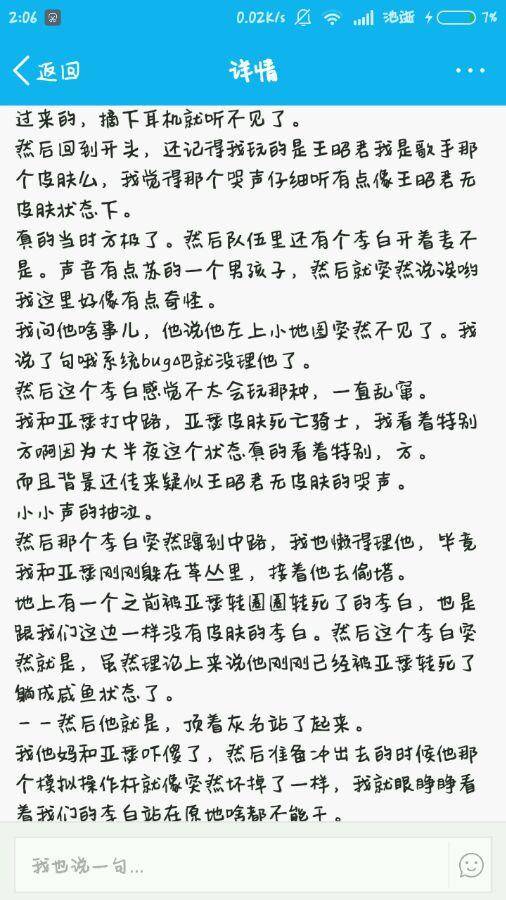 2:06
0.02K/s
池逝
7%
返回
详情
过来的，摘下耳机就听不见了。
然后回到开头，还记得我玩的是王昭君我是歌手那
个皮肤么，我觉得那个哭声仔细听有点像王昭君无
皮肤状态下。
真的当时方极了。然后队伍里还有个李白开着麦不
是。声音有点苏的一个男孩子，然后就突然说诶哟
我这里好像有点奇怪。
我问他啥事儿，他说他左上小地图突然不见了。我
说了句哦系统bug吧就没理他了。
然后这个李白感觉不太会玩那种，一直乱窜。
我和亚瑟打中路，亚瑟皮肤死亡骑士，我看着特别
方啊因为大半夜这个状态真的看着特别，方。
而且背景还传来疑似王昭君无皮肤的哭声。
小小声的抽泣。
然后那个李白突然蹿到中路，我也懒得理他，毕竟
我和亚瑟刚刚躲在草丛里，接着他去偷塔。
地上有一个之前被亚瑟转圈圈转死了的李白，也是
跟我们这边一样没有皮肤的李白。然后这个李白突
然就是，虽然理论上来说他刚刚已经被亚瑟转死了
躺成咸鱼状态了。
－－然后他就是，顶着灰名站了起来。
我他妈和亚瑟吓傻了，然后准备冲出去的时候他那
个模拟操作杆就像突然坏掉了一样，我就眼睁睁看
着我们的李白站在原地啥都不能干。
我也说一句...